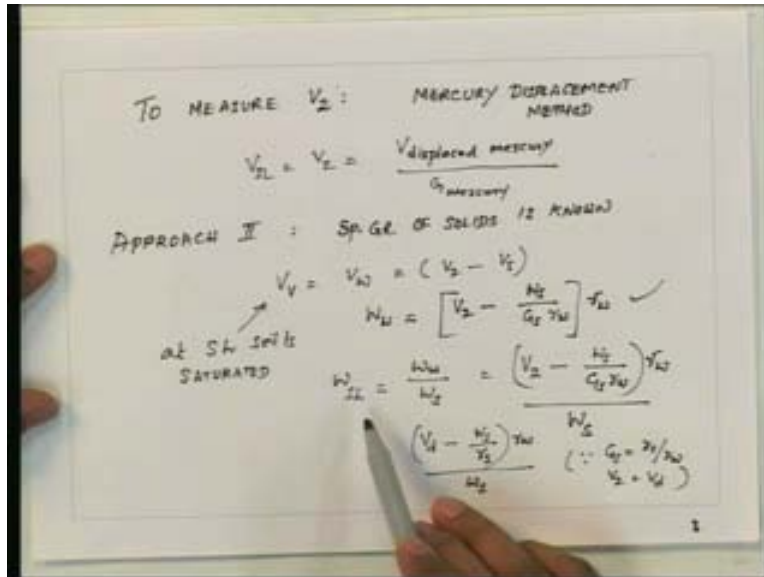 TO MEASURE V2 : MERCURY DISPLACEMENT METHOD
VSL = V2 = Vdisplaced mercury / Gmercury
APPROACH II : SP. GR OF SOLIDS IS KNOWN
Vv = Vw = (V2 - Vs)
at SL soil is SATURATED
Ww = [V2 - Ws/(Gs γw)] γw ✓
wSL = Ww/Ws = (V2 - Ws/(Gs γw)) γw / Ws
(Vd - Ws/γs) γw / Ws (∵ Gs = γs/γw
V2 = Vd)